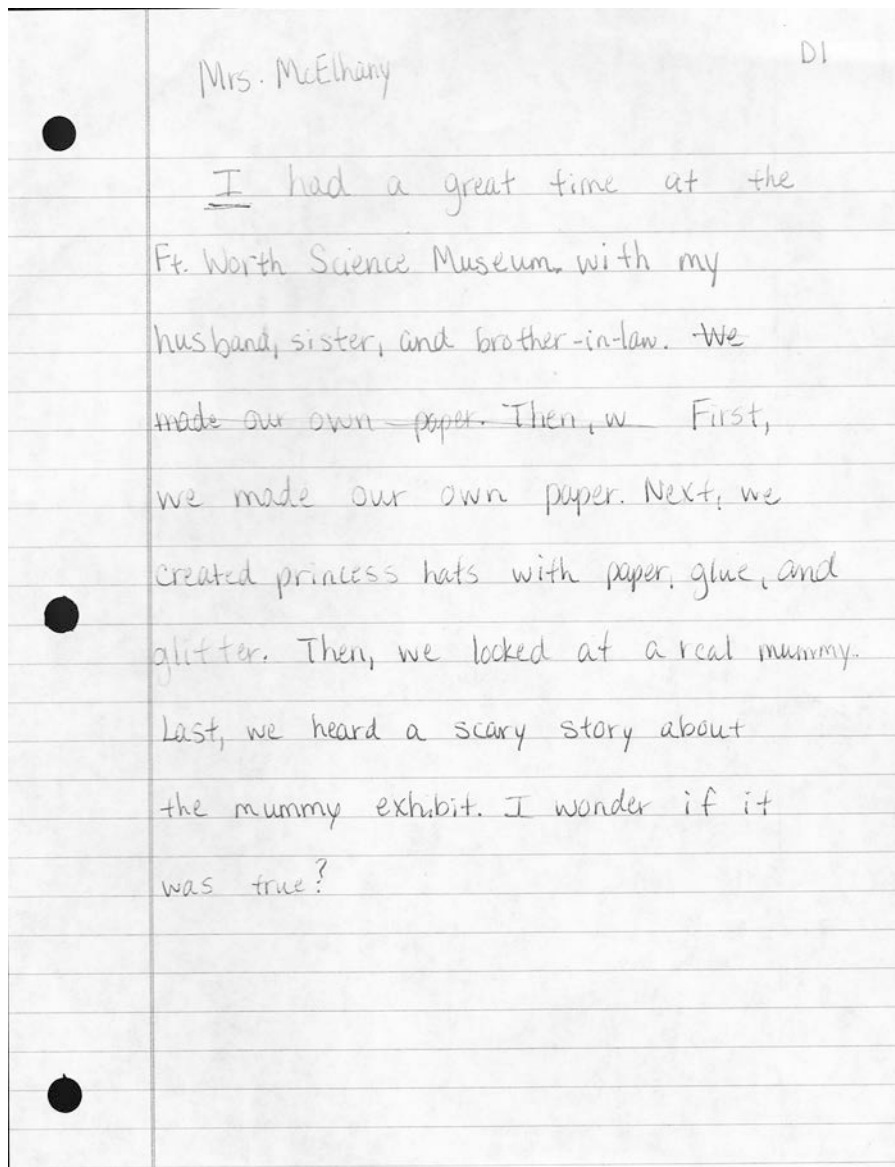 D1
Mrs. McElhany
I had a great time at the
Ft. Worth Science Museum. with my
husband, sister, and brother-in-law. We
made our own paper. Then, w First,
we made our own paper. Next, we
created princess hats with paper, glue, and
glitter. Then, we looked at a real mummy.
Last, we heard a scary story about
the mummy exhibit. I wonder if it
was true?